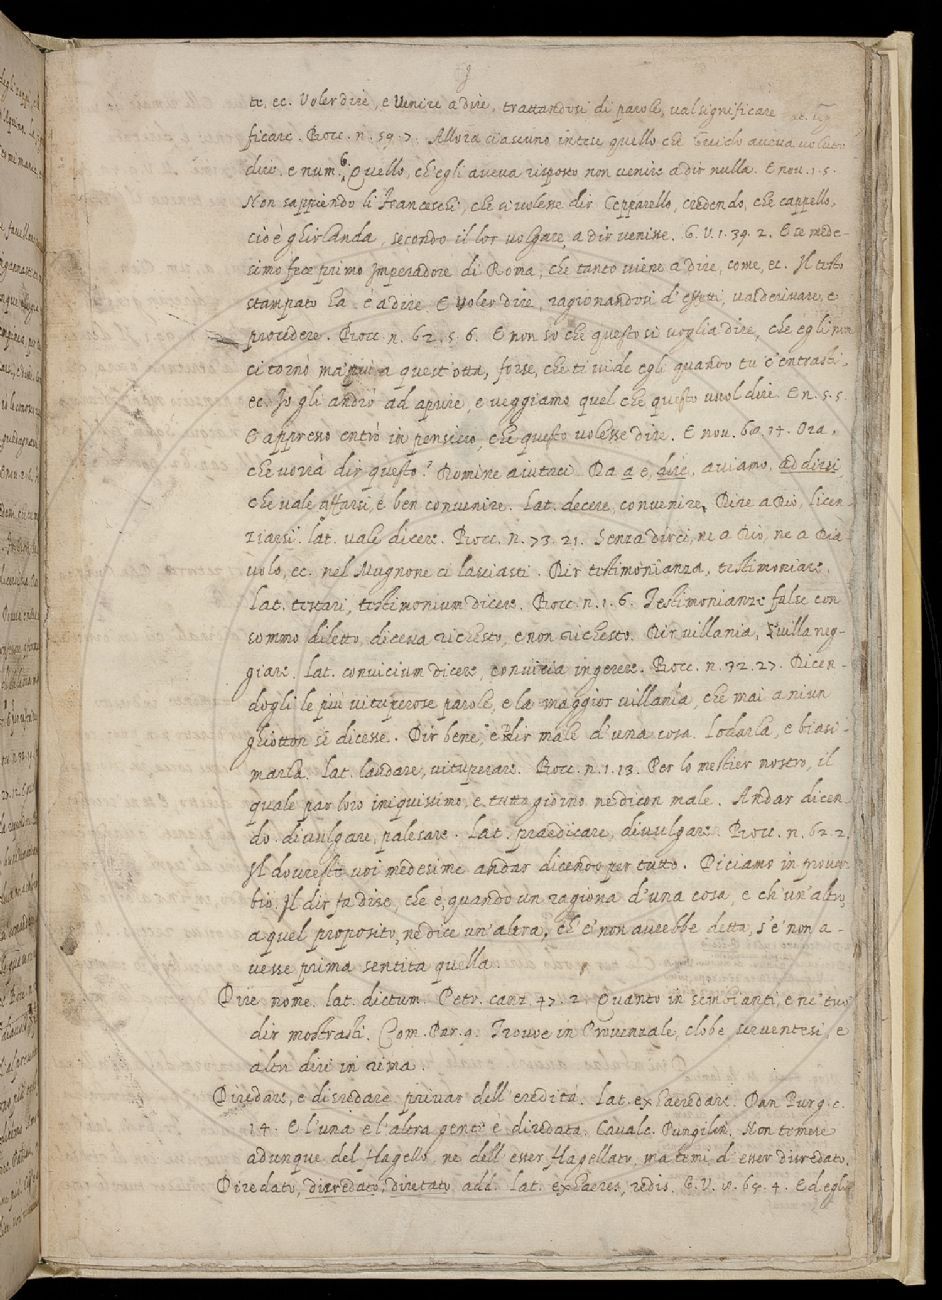 te, ec. Voler dire, e Venire a dire, trattandosi di parole, val significare
ficare. Bocc. n. 59. 7. Allora ciascuno intese quello che Guido aveva voluto
dire. e num. 6. Quello, ch'egli aveva risposto non venire a dir nulla. E nov. 1. 5.
Non sappiendo li Franceschi, che si volesse dir Cepparello, credendo, che cappello,
cioè ghirlanda, secondo il lor volgare a dir venisse. G. V. 1. 39. 2. E se mede-
simo fece primo Imperadore di Roma, che tanto viene a dire, come, ec. Il testo
stampato ha è a dire. E Voler dire, ragionandosi d'effetti, val derivare, e
procedere. Bocc. n. 62. 5. 6. E non so che questo si voglia dire, che egli non
ci tornò mai più a quest'otta, forse, che ti vide egli quando tu c'entrasti,
ec. Io gli andrò ad aprire, e veggiamo quel che questo vuol dire. E n. 5. 5.
E appresso entrò in pensiero, che questo volesse dire. E nov. 60. 14. Ora,
che vorrà dir questo? Domine aiutaci. Da a e, dire, aviamo, ad dirsi
che vale affarsi, e ben convenire. Lat. decere, convenire. Dire a Dio, licen-
ziarsi. lat. vale dicere. Bocc. n. 73. 21. Senza dirci, ne a Dio, ne a Dia-
volo, ec. nel Mugnone ci lasciasti. Dir testimonianza, testimoniare.
Lat. testari, testimonium dicere. Bocc. n. 1. 6. Testimonianze false con
sommo diletto diceva richesto, e non richesto. Dir villania, Svillaneg-
giare. lat. convicium dicere, convitia ingerere. Bocc. n. 72. 27. Dicen-
dogli le più vituperose parole, e la maggior villania, che mai a niun
ghiotton si dicesse. Dir bene, e dir male d'una cosa. Lodarla, e biasi-
marla. lat. laudare, vituperare. Bocc. n. 1. 13. Per lo mestier nostro, il
quale par loro iniquissimo, e tutto giorno ne dicon male. Andar dicen-
do. divulgare, palesare. Lat. praedicare, divulgare. Bocc. n. 62. 2.
Il dovreste voi medesime andar dicendo per tutto. Diciamo in prover-
bio. Il dir fa dire, che è, quando un ragiona d'una cosa, e ch'un'altro,
a quel proposito, ne dice un'altra, ch'e' non avrebbe detta, s'e' non a-
vesse prima sentita quella.
Dire nome. lat. dictum. Petr. canz. 47. 2. Quanto in sembianti, e ne' tuo
dir mostrasti. Com. Par. 9. Trovò in Provenzale, clobe serventesi, e
altri diri in rima.
Diredare, e disredare privar dell'eredità. lat. exhaeredare. Dan. Purg. c.
14. E l'una e l'altra gente è diredata. Cavalc. Pungilin. Non temere
adunque del flagello, ne dell'esser flagellato, ma temi d'esser disredato.
Diredato, disredato, diretato add. lat. exhaeres, redis. G. V. 8. 65. 4. Ed egli